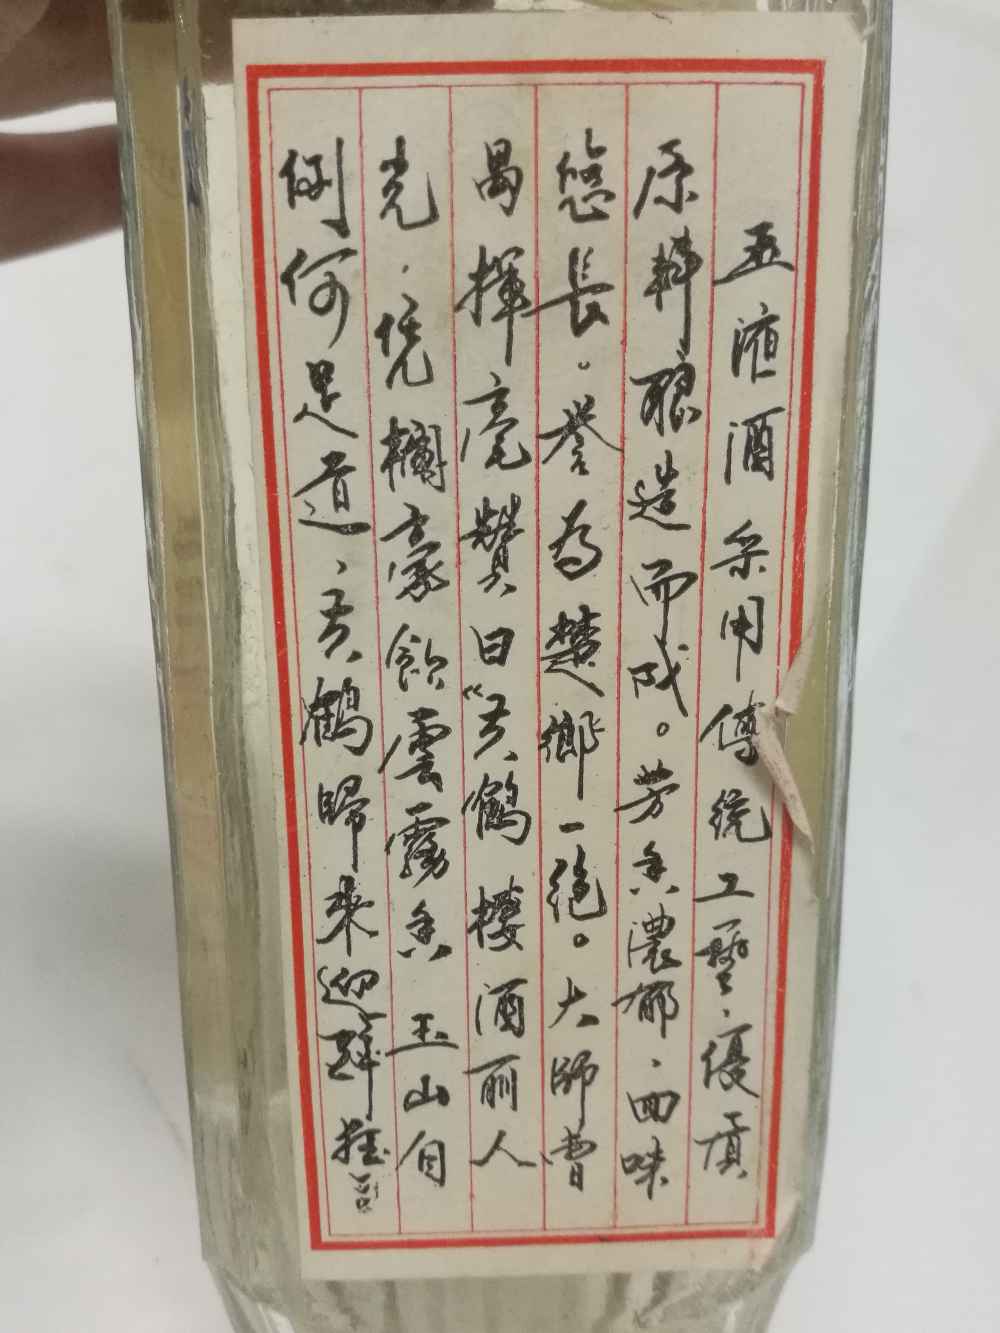 五液酒采用傳统工藝，優質
原料酿造而成。芳香濃郁、回味
悠長。譽为楚鄉一絕。大師曹
禺揮毫贊曰“黄鶴樓酒丽人
光，凭欄豪飲雲霧香玉山自
倒何足道、黄鶴歸來迎